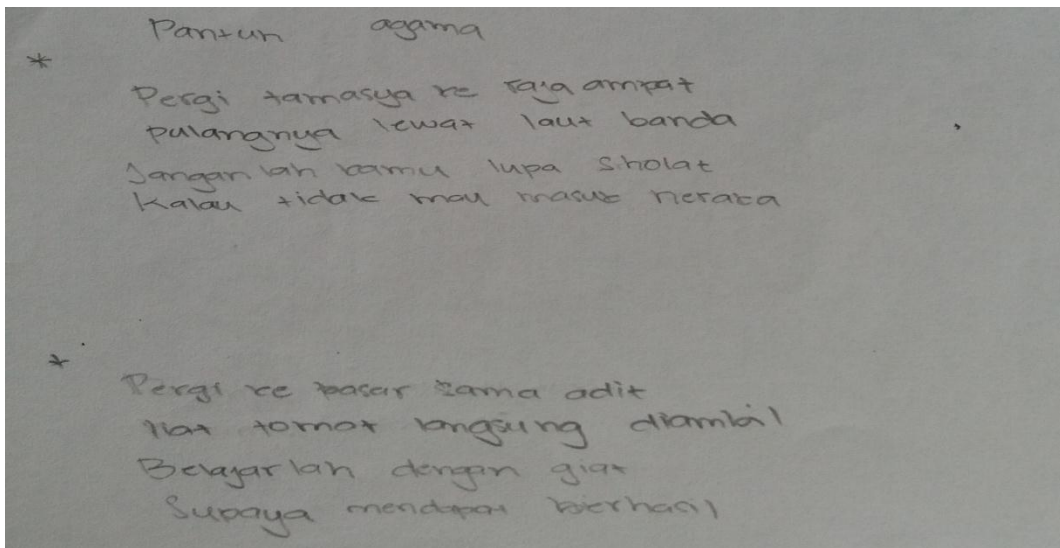 Pantun agama
* 
Pergi tamasya ke raja ampat
pulangnya lewat laut banda
Jangan lah kamu lupa sholat
Kalau tidak mau masuk neraka
*
Pergi ke pasar sama adit
liat tomat langsung diambil
Belajar lah dengan giat
Supaya mendapat berhasil